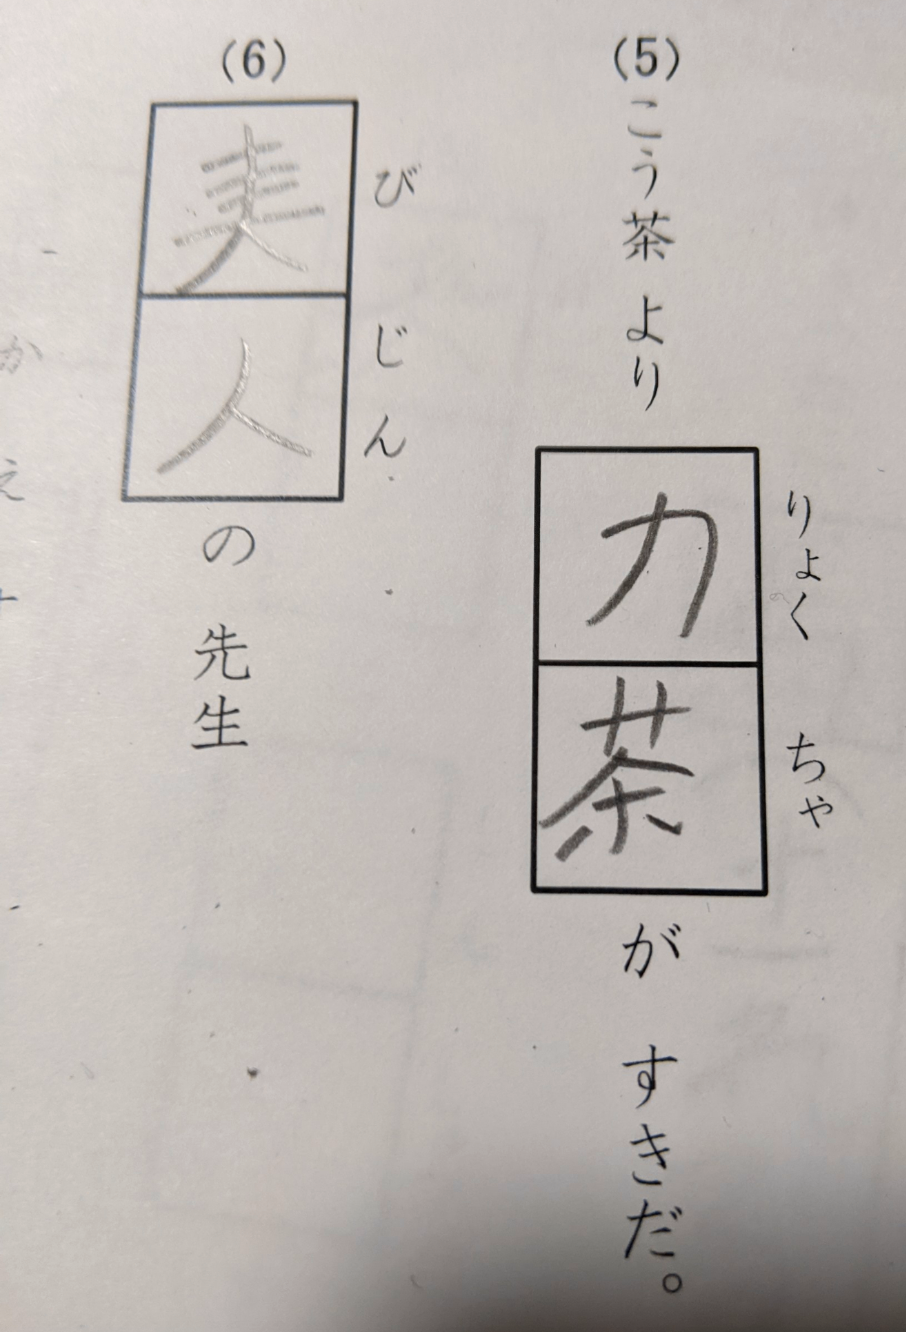 (5)こう茶 より 力茶 が すきだ。
りょく ちゃ
(6)人 の 先生
び じん